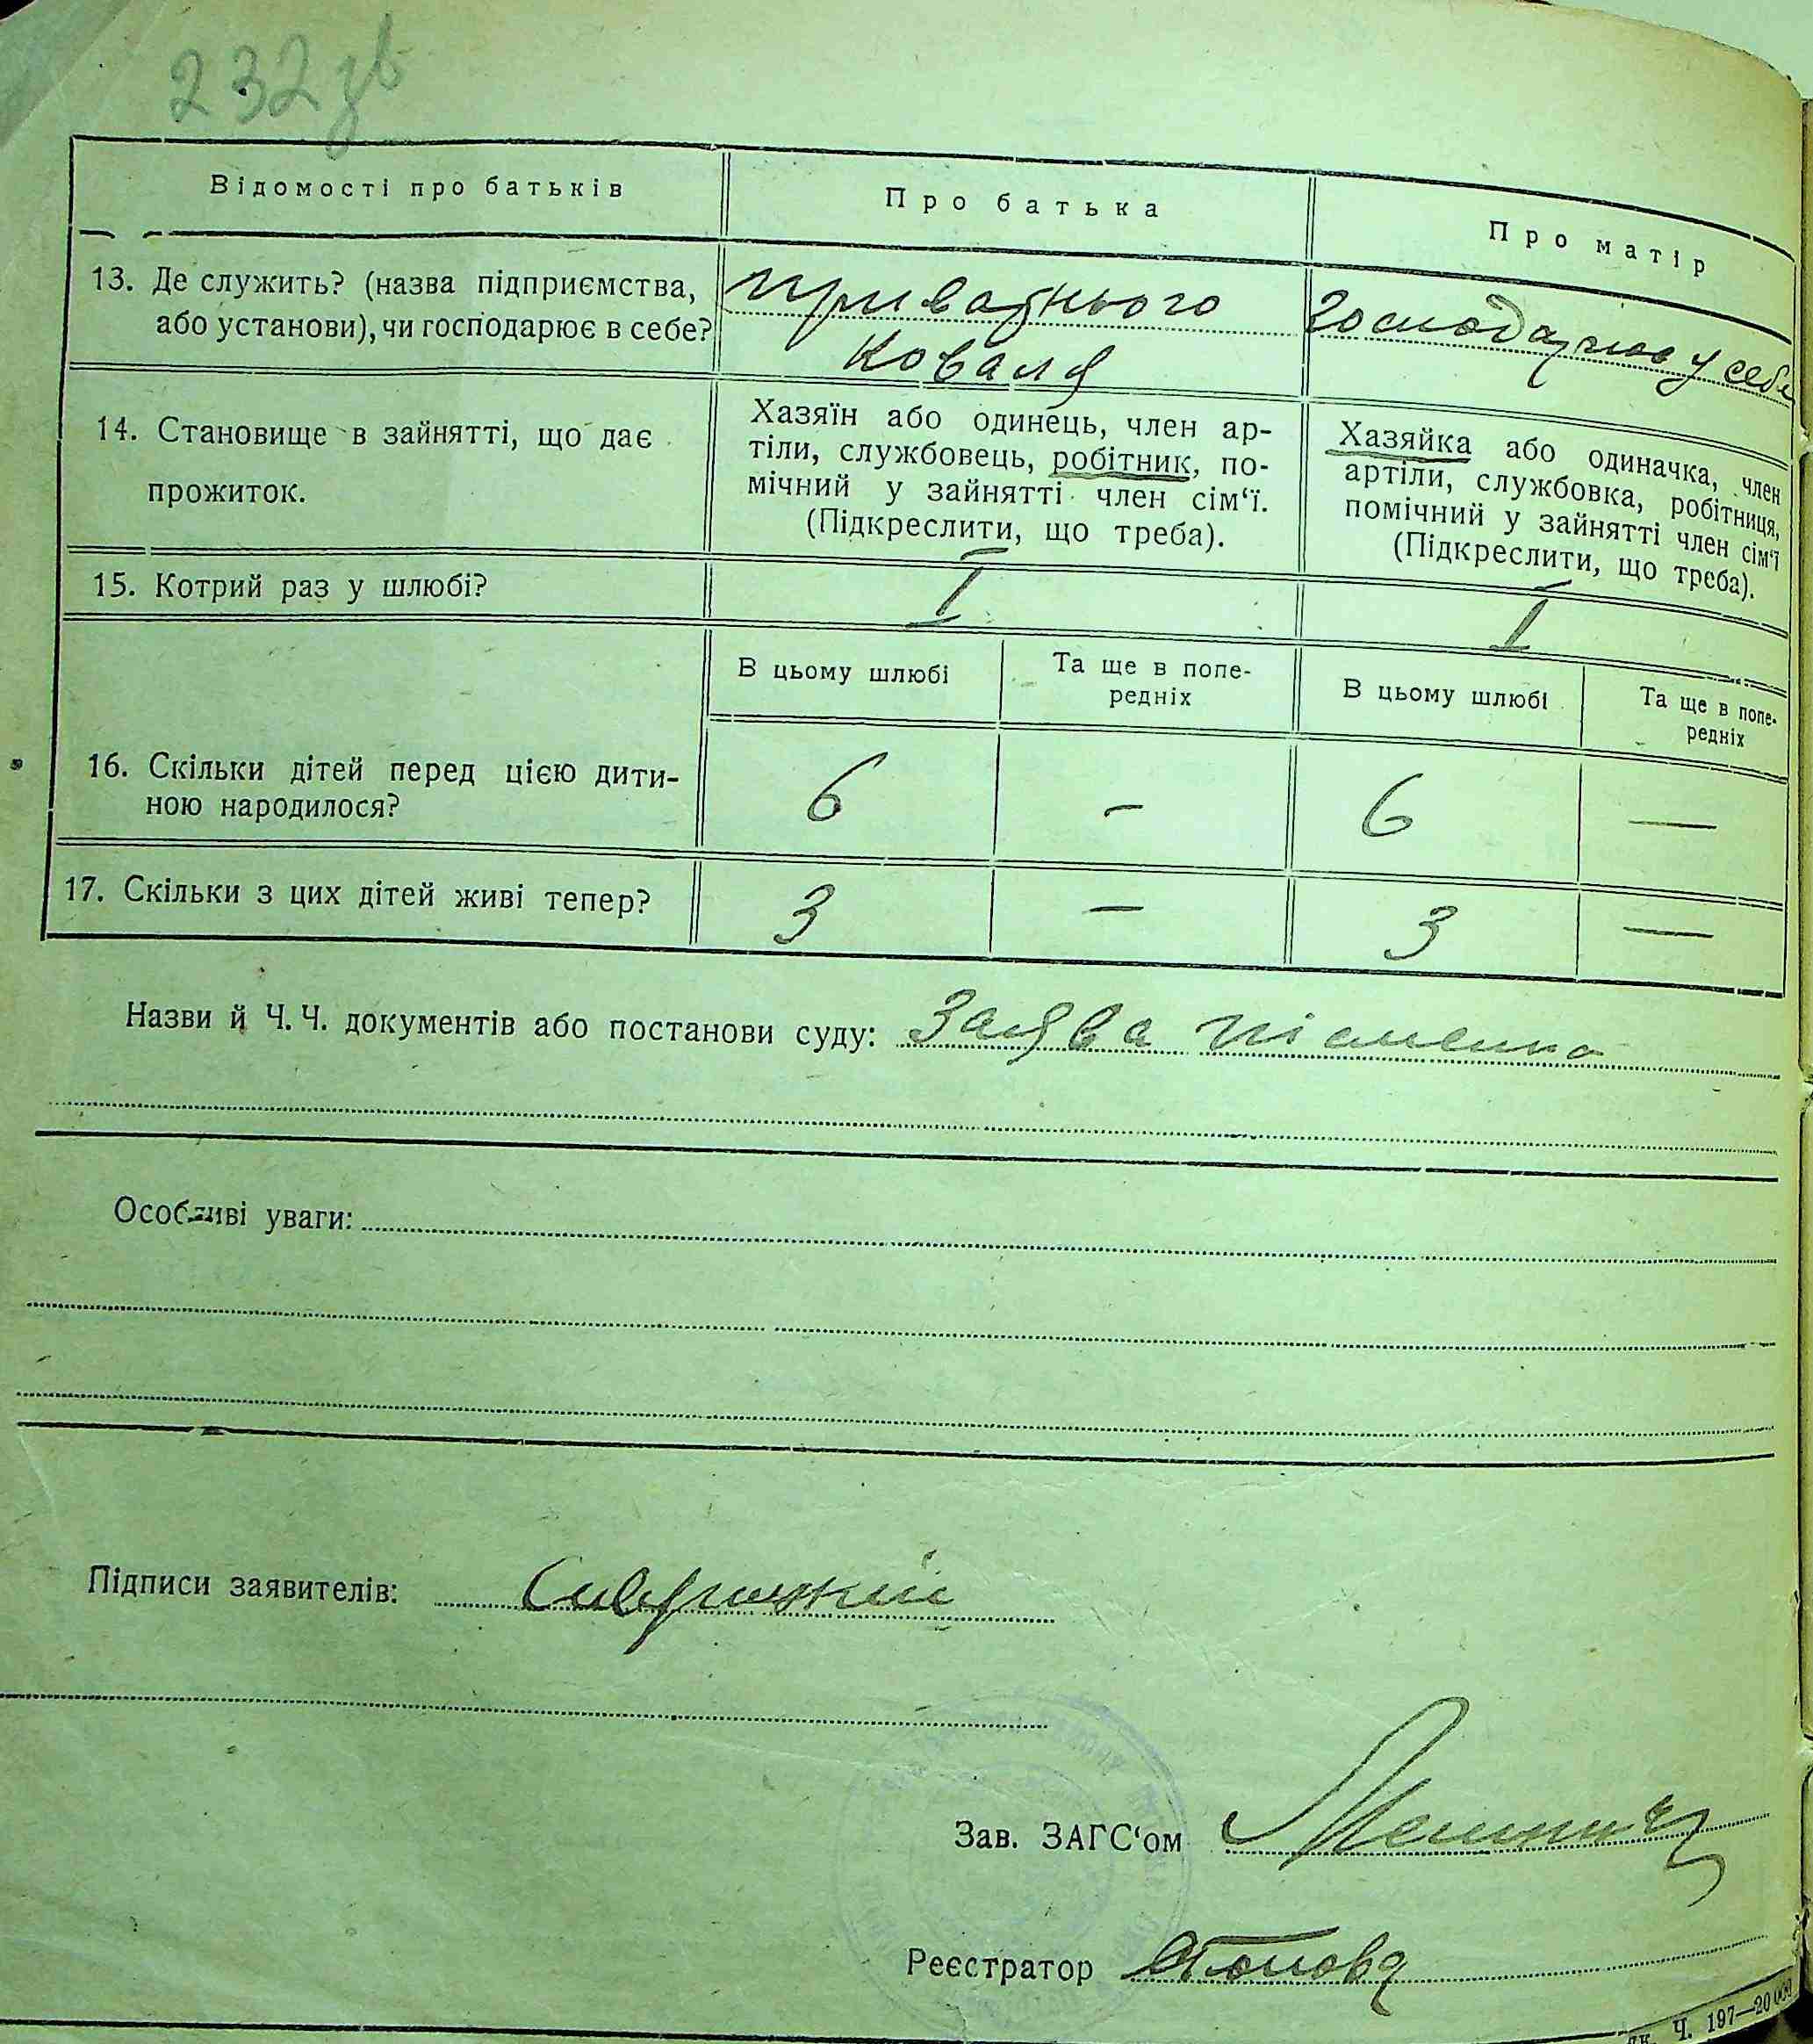 232 зв
Відомості про батьків
Про батька
Про матір
13. Де служить? (назва підприємства,
або установи), чи господарює в себе?
приватнього
коваля
господарює у себе
14. Становище в зайнятті, що дає
прожиток.
Хазяїн або одинець, член ар-
тіли, службовець, робітник, по-
мічний у зайнятті член сім‘ї.
(Підкреслити, що треба).
Хазяйка або одиначка, член
артіли, службовка, робітниця,
помічний у зайнятті член сім‘ї
(Підкреслити, що треба).
15. Котрий раз у шлюбі?
I
I
В цьому шлюбі
Та ще в попе-
редніх
В цьому шлюбі
Та ще в попе-
редніх
16. Скільки дітей перед цією дити-
ною народилося?
6
–
6
—
17. Скільки з цих дітей живі тепер?
3
—
3
—
Назви й Ч. Ч. документів або постанови суду: Заява пісменна
Особливі уваги:
Підписи заявителів:
Зав. ЗАГС‘ом
Реєстратор Попова
Ч. 197—20 000